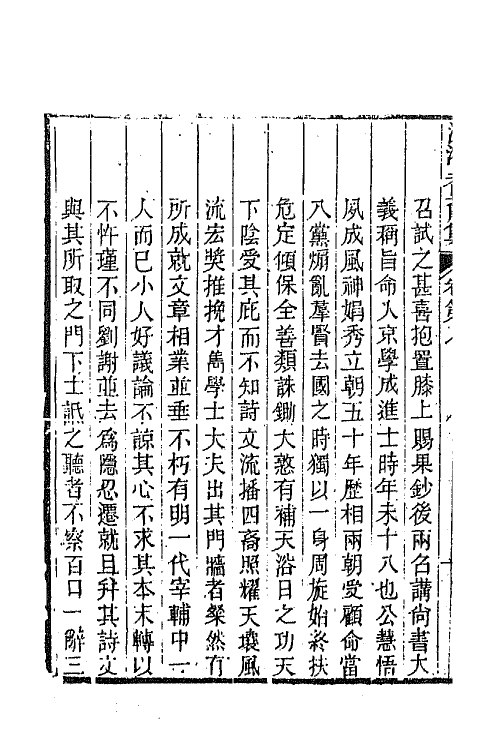 召試之甚喜抱置膝上賜果鈔後兩召講尚書大
義稱旨命入京學成進士時年未十八也公慧悟
夙成風神娟秀立朝五十年歷相兩朝受顧命當
八黨煽亂羣賢去國之時獨以一身周旋始終扶
危定傾保全善類誅鋤大憝有補天浴日之功天
下陰受其庇而不知詩文流播四裔照耀天壤風
流宏奬推挽才雋學士大夫出其門牆者粲然有
所成就文章相業並垂不朽有明一代宰輔中一
人而已小人好議論不諒其心不求其本末轉以
不忤瑾不同劉謝並去為隱忍遷就且并其詩文
與其所取之門下士詆之聽者不察百口一辭三